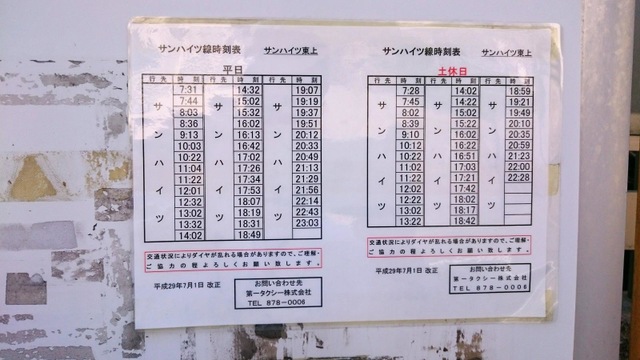 サンハイツ線時刻表 サンハイツ東上
平日
行先 時刻 行先 時刻 行先 時刻
サンハイツ サンハイツ サンハイツ
7:31 14:32 19:07
7:44 15:02 19:19
8:03 15:32 19:37
8:36 16:02 19:51
9:13 16:13 20:12
10:03 16:42 20:33
10:22 17:02 20:49
11:04 17:26 21:13
11:22 17:34 21:29
12:01 17:53 21:56
12:32 18:07 22:14
13:02 18:19 22:43
13:32 18:31 23:03
14:02 18:49
交通状況によりダイヤが乱れる場合がありますので、ご理解・
ご協力の程よろしくお願い致します。
平成29年7月1日 改正
お問い合わせ先
第一タクシー株式会社
TEL 878-0006
サンハイツ線時刻表 サンハイツ東上
土休日
行先 時刻 行先 時刻 行先 時刻
サンハイツ サンハイツ サンハイツ
7:28 14:02 18:59
7:45 14:22 19:21
8:02 15:02 19:49
8:39 15:22 20:10
9:10 16:02 20:35
10:12 16:22 20:59
10:22 16:51 21:23
11:02 17:03 22:00
11:22 17:21 22:28
12:02 17:42
12:22 18:02
13:02 18:17
13:22 18:42
交通状況によりダイヤが乱れる場合がありますので、ご理解・
ご協力の程よろしくお願い致します。
平成29年7月1日 改正
お問い合わせ先
第一タクシー株式会社
TEL 878-0006